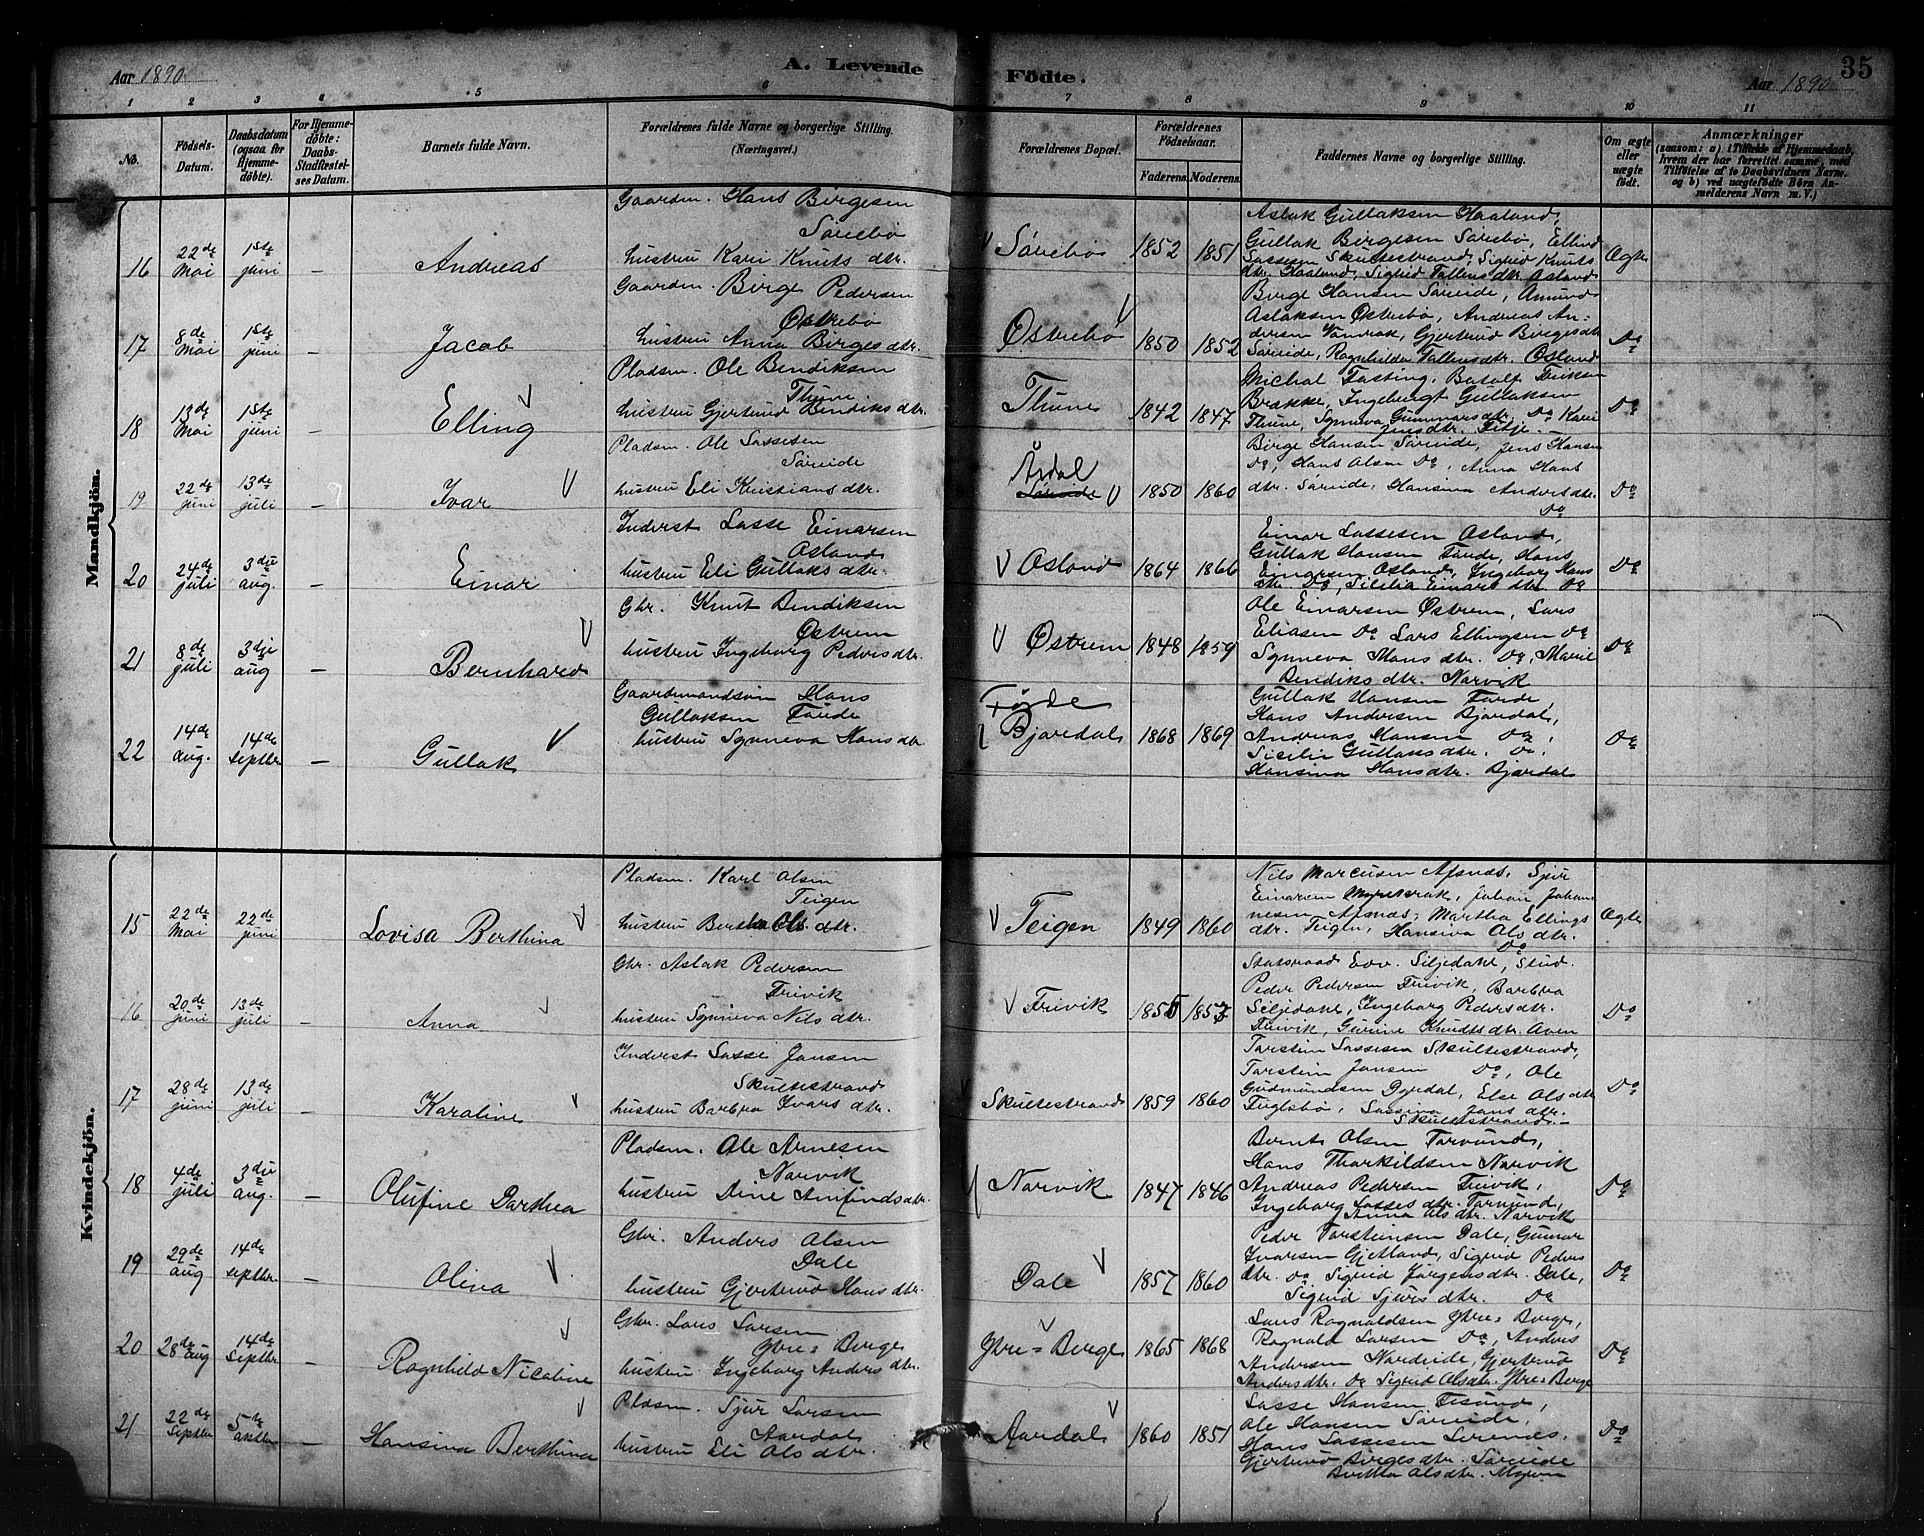 Aar 1890
A. Levende
Födte.
35
Aar 1890
1 2 3 4 5 6 7 8 9 10 11
No.
Födsels-
Datum.
Daabsdatum
(ogsaa for
Hjemme-
döbte).
For Hjemme-
döbte:
Daabs-
Stadfæstel-
ses Datum.
Barnets fulde Navn.
Forældrenes fulde Navne og borgerlige Stilling.
(Næringsvei.)
Forældrenes Bopæl.
Forældrenes
Födselsaar.
Faderens.
Moderens.
Faddernes Navne og borgerlige Stilling.
Om ægte
eller
uægte
födt.
Anmærkninger
(saasom: a) i Tilfælde af Hjemmedaab,
hvem der har forrettet samme, med
Tilföielse af to Daabsvidners Navne.
og b) ved uægtefödte Börn An-
melderens Navn m. V.)
Mandkjön.
16
22de
Mai
1ste
juni
–
Andreas
Gaardm. Hans Birgesen
Sørebø
hustru Kari Knuts dtr.
Sørebø
1852
1851
Aslak Gullaksen Haaland,
Gullak Birgesen Sørebø, Elling
Lassesen Skultestrand, Sigrid Knuts
dtr. Haaland, Sigrid Tallens dtr. Osland
Ægte
17
8de
Mai
1ste
juni
–
Jacob
Gaardm. Birge Pedersen
Østrebø
hustru Anna Birges dtr.
Østrebø
1850
1852
Birge Hansen Søreide, Amund
Aslaksen Østrebø, Andreas An-
dersen Vamrak, Gjertrud Birges dtr
Søreide, Ragnhilda Tallens dtr. Osland
Do
18
13de
Mai
1ste
juni
–
Elling
Pladsm. Ole Bendiksen
Thune
hustru Gjertrud Bendiks dtr.
Thune
1842
1847
Michal Fasting, Batolf Eriksen
Brække, Ingebrigt Gullaksen
Thune, Synneva Gunnars dtr. Do Kari
Jens dtr. Tilje.
Do
19
22de
juni
13de
juli
–
Ivar
Pladsm. Ole Lassesen
Søreide
hustru Eli Kristians dtr.
Årdal
Søreide
1850
1860
Birge Hansen Søreide, Jens Hansen
Do, Hans Olsen Do, Anna Hans
dtr. Søreide, Hansina Anders dtr.
Do
Do
20
24de
juli
3die
aug.
–
Einar
Inderst Lasse Einarsen
Osland
hustru Eli Gullaks dtr.
Osland
1864
1866
Einar Lassesen Osland,
Gullak Hansen Førde, Hans
Einarsen Osland, Ingeborg Hans
dtr. Do, Sicilia Einars dtr. Do
Do
21
8de
juli
3die
aug
–
Bernhard
Gbr. Knut Bendiksen
Østrem
hustru Ingeborg Peders dtr.
Østrem
1848
1859
Ole Einarsen Østrem, Lars
Eliasen Do Lars Ellingsen Do
Synneva Hans dtr. Do, Marie
Bendiks dtr. Narvik
Do
22
14de
aug.
14de
septbr
–
Gullak
Gaardmandsøn Hans
Gullaksen Førde
hustru Synneva Hans dtr
Førde
Bjordal
1868
1869
Gullak Hansen Førde
Hans Andersen Bjordal,
Andreas Hansen Do,
Sicilie Gullaks dtr. Do.
Hansina Hans dtr. Bjordal
Do
Kvindekjön.
15
22de
Mai
22de
juni
Lovisa Berthina
Pladsm. Karl Olsen
Teigen
hustru Bertha Ols dtr.
Teigen
1849
1860
Nils Marcusen Afsnæs, Sjur
Einarsen Myrekrok, Johan Johan-
nesen Afsnæs, Martha Ellings
dtr. Teigen, Hansina Ols dtr.
Do
Ægte
16
20de
juni
13de
juli
–
Anna
Gbr. Aslak Pedersen
Frivik
hustru Synneva Nils dtr.
Frivik
1855
1857
Statsraad Sofus Siljedahl, Stud.
Peder Pedersen Frivik, Barbra
Siljedahl, Ingeborg Peders dtr.
Frivik, Gurine Knudts dtr. Aven
Do
17
28de
juni
13de
juli
–
Karoline
Inderst Lasse Jansen
Skultestrand
hustru Barbra Ivars dtr.
Skultestrand
1859
1860
Torstein Lassesen Skultestrand,
Torstein Jansen Do, Ole
Gudmundsen Dyrdal, Else Ols dtr
Fuglsbø, Lassina Jans dtr.
Skultestrand.–
Do
18
4de
juli
3die
aug.
–
Olufine Dorthea
Pladsm. Ole Arnesen
Narvik
hustru Dine Anfinds dtr.
Narvik
1847
1846
Bernt Olsen Torvund,
Hans Thorkildsen Narvik
Andreas Pedersen Frivik,
Ingeborg Lasses dtr. Torvund,
Anna Ols dtr. Narvik
Do
19
29de
aug
14de
septbr
–
Olina
Gbr. Anders Olsen
Dale
hustru Gjertrud Hans dtr.
Dale
1857
1860
Peder Torsteinsen Dale, Gunnar
Ivarsen Gjetland, Sigrid Peders
dtr. Do Sigrid Jørgens dtr. Dale,
Sigrid Sjurs dtr. Do
Do
20
28de aug
14de
Septbr
–
Ragnhild Nicoline
Gbr. Lars Larsen
Ytre-Berge
hustru Ingeborg Anders dtr.
Ytre-Berge
1865
1868
Lars Ragnaldsen Ytre-Berge,
Ragnald Larsen Do, Anders
Andersen Nordeide, Gjertrud
Anders dtr. Do Sigrid Ols dtr. Ytre-Berge
Do
21
22de
Septbr
5te
oktbr
–
Hansina Berthina
Pladsm. Sjur Larsen
Aardal
hustru Eli Ols dtr.
Aardal
1860
1851
Lasse Hansen Eisund,
Ole Hansen Søreide,
Hans Lassesen Lerenes,
Gjertrud Birges dtr. Søreide
Brithe Ols dtr. Myren
Do